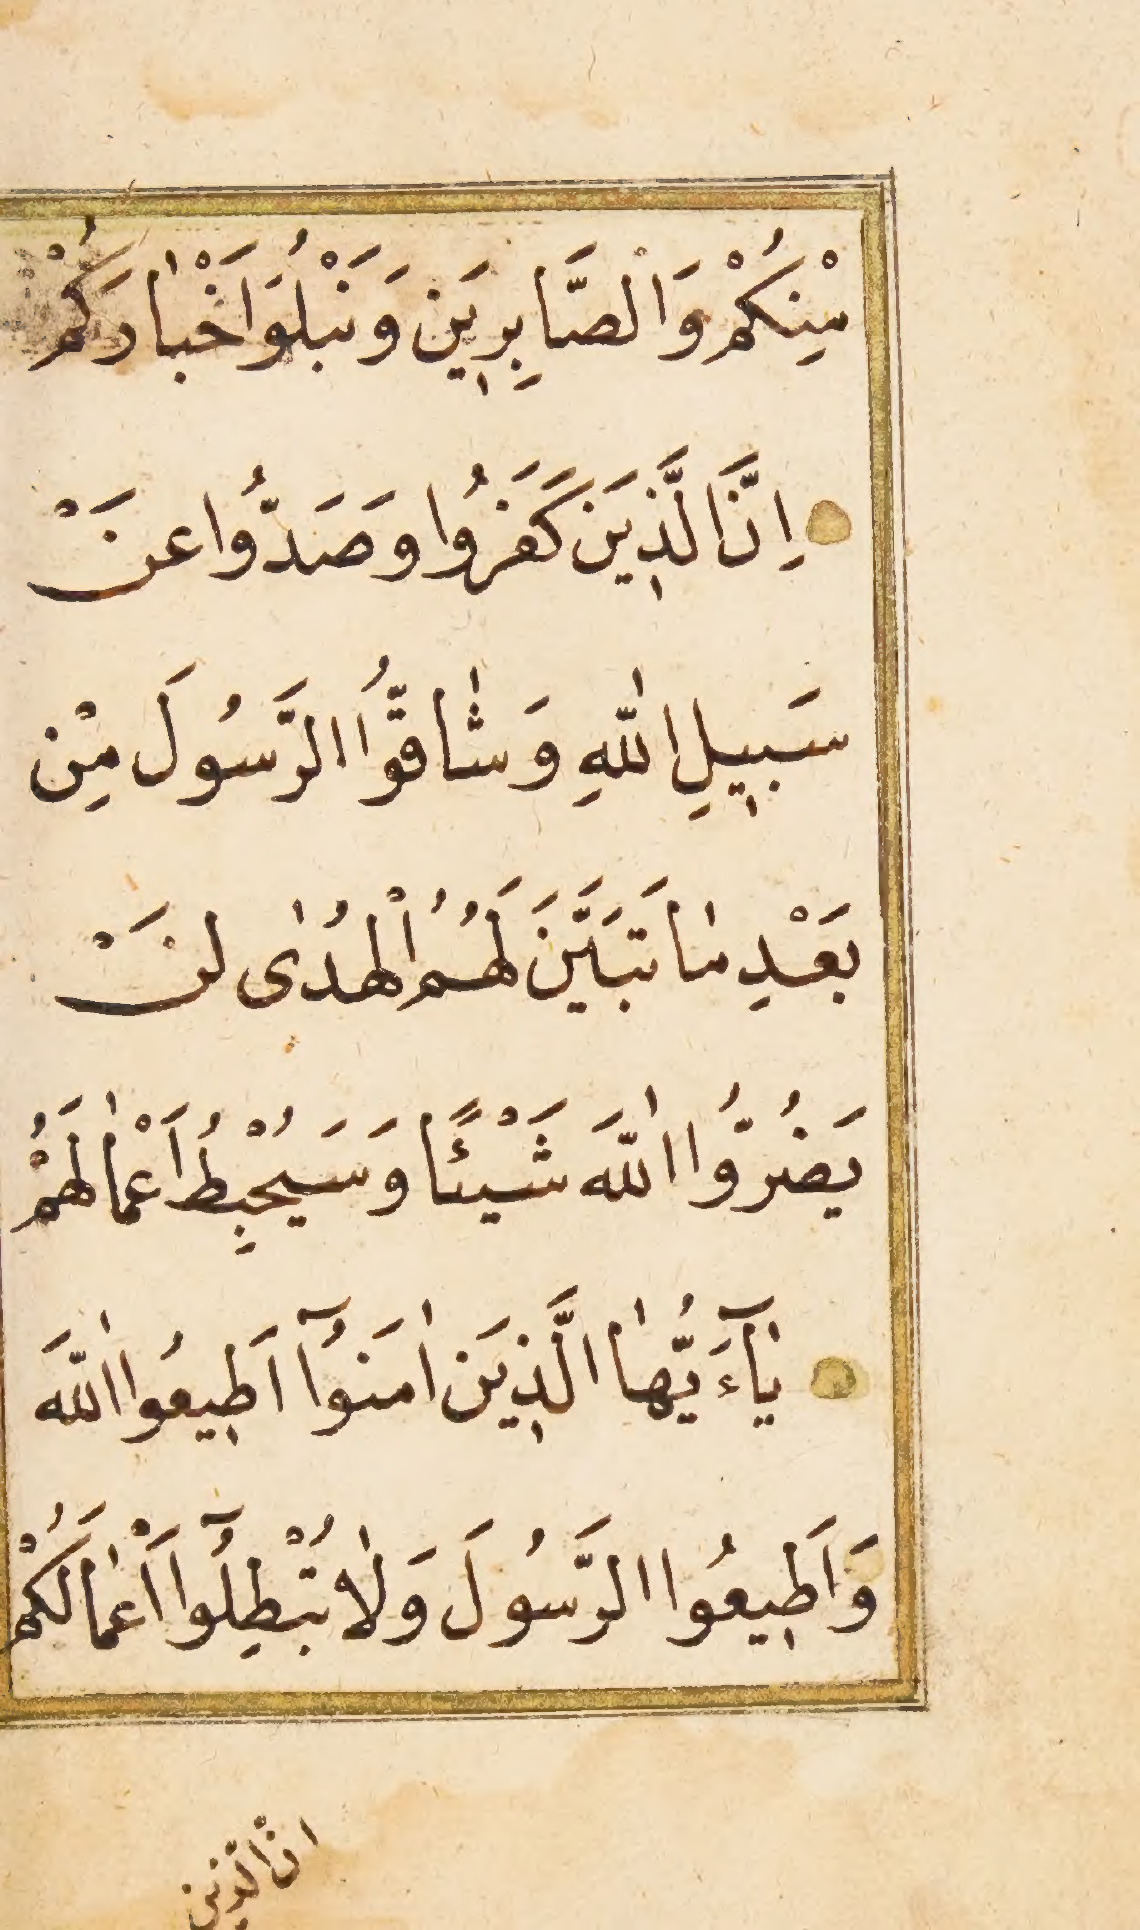 مِنْكُمْ وَالْصَّابِرِينَ وَنَبْلُوَا خْبٰارَكُمْ
اِنَّ الَّذِينَ كَفَرُوا وَصَدُّوا عَنْ
سَبِيلِ اللّٰهِ وَشٰاقُّوا الرَّسُولَ مِنْ
بَعْدِ مٰا تَبَيَّنَ لَهُمُ الْهُدٰى لَنْ
يَضُرُّوا اللّٰهَ شَيْئًا وَسَيُحْبِطُ اَعْمٰالَهُمْ
يٰٓاءَيُّهٰا الَّذِينَ اٰمَنُوٓا اَطِيعُوا اللّٰهَ
وَاَطِيعُوا الرَّسُولَ وَلٰا تُبْطِلُوٓا اَعْمٰالَكُمْ
انّ الّذين